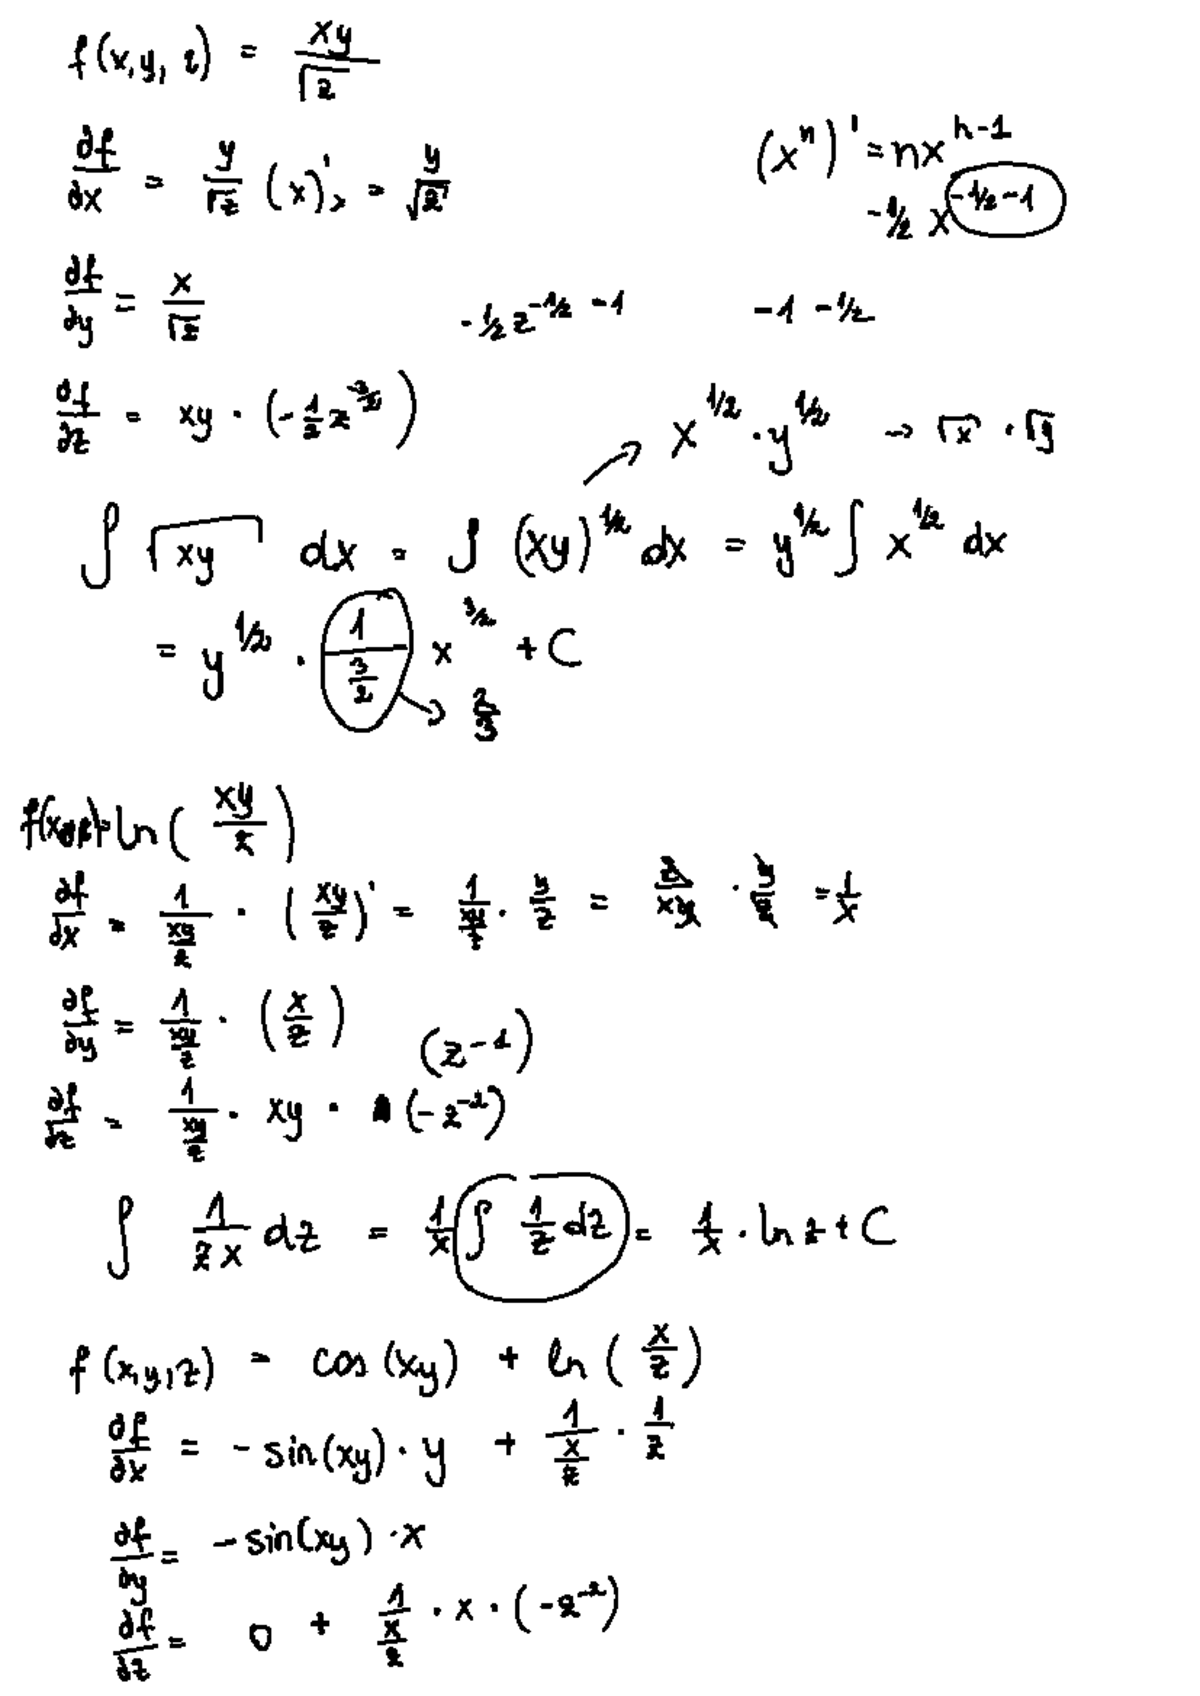 f(x,y,z) = xy/√z
∂f/∂x = y/√z (x)'ₓ = y/√z
(xⁿ)' = nxⁿ⁻¹
-1/2 x^(-1/2-1)
∂f/∂y = x/√z
-1/2 z^(-1/2 -1)
-1 -1/2
∂f/∂z = xy · (-1/2 z^(-3/2))
x^(1/2) · y^(1/2) → √x · √y
∫ √(xy) dx = ∫ (xy)^(1/2) dx = y^(1/2) ∫ x^(1/2) dx
= y^(1/2) · 1/(3/2) x^(3/2) + C
→ 2/3
f(x,y,z)=ln(xy/z)
∂f/∂x = 1/(xy/z) · (xy/z)' = 1/(xy/z) · y/z = z/(xy) · y/z = 1/x
∂f/∂y = 1/(xy/z) · (x/z)
(z⁻¹)
∂f/∂z = 1/(xy/z) · xy · (-z⁻²)
∫ 1/(zx) dz = 1/x ∫ 1/z dz = 1/x · ln z + C
f(x,y,z) = cos(xy) + ln(x/z)
∂f/∂x = -sin(xy) · y + 1/(x/z) · 1/z
∂f/∂y = -sin(xy) · x
∂f/∂z = 0 + 1/(x/z) · x · (-z⁻²)